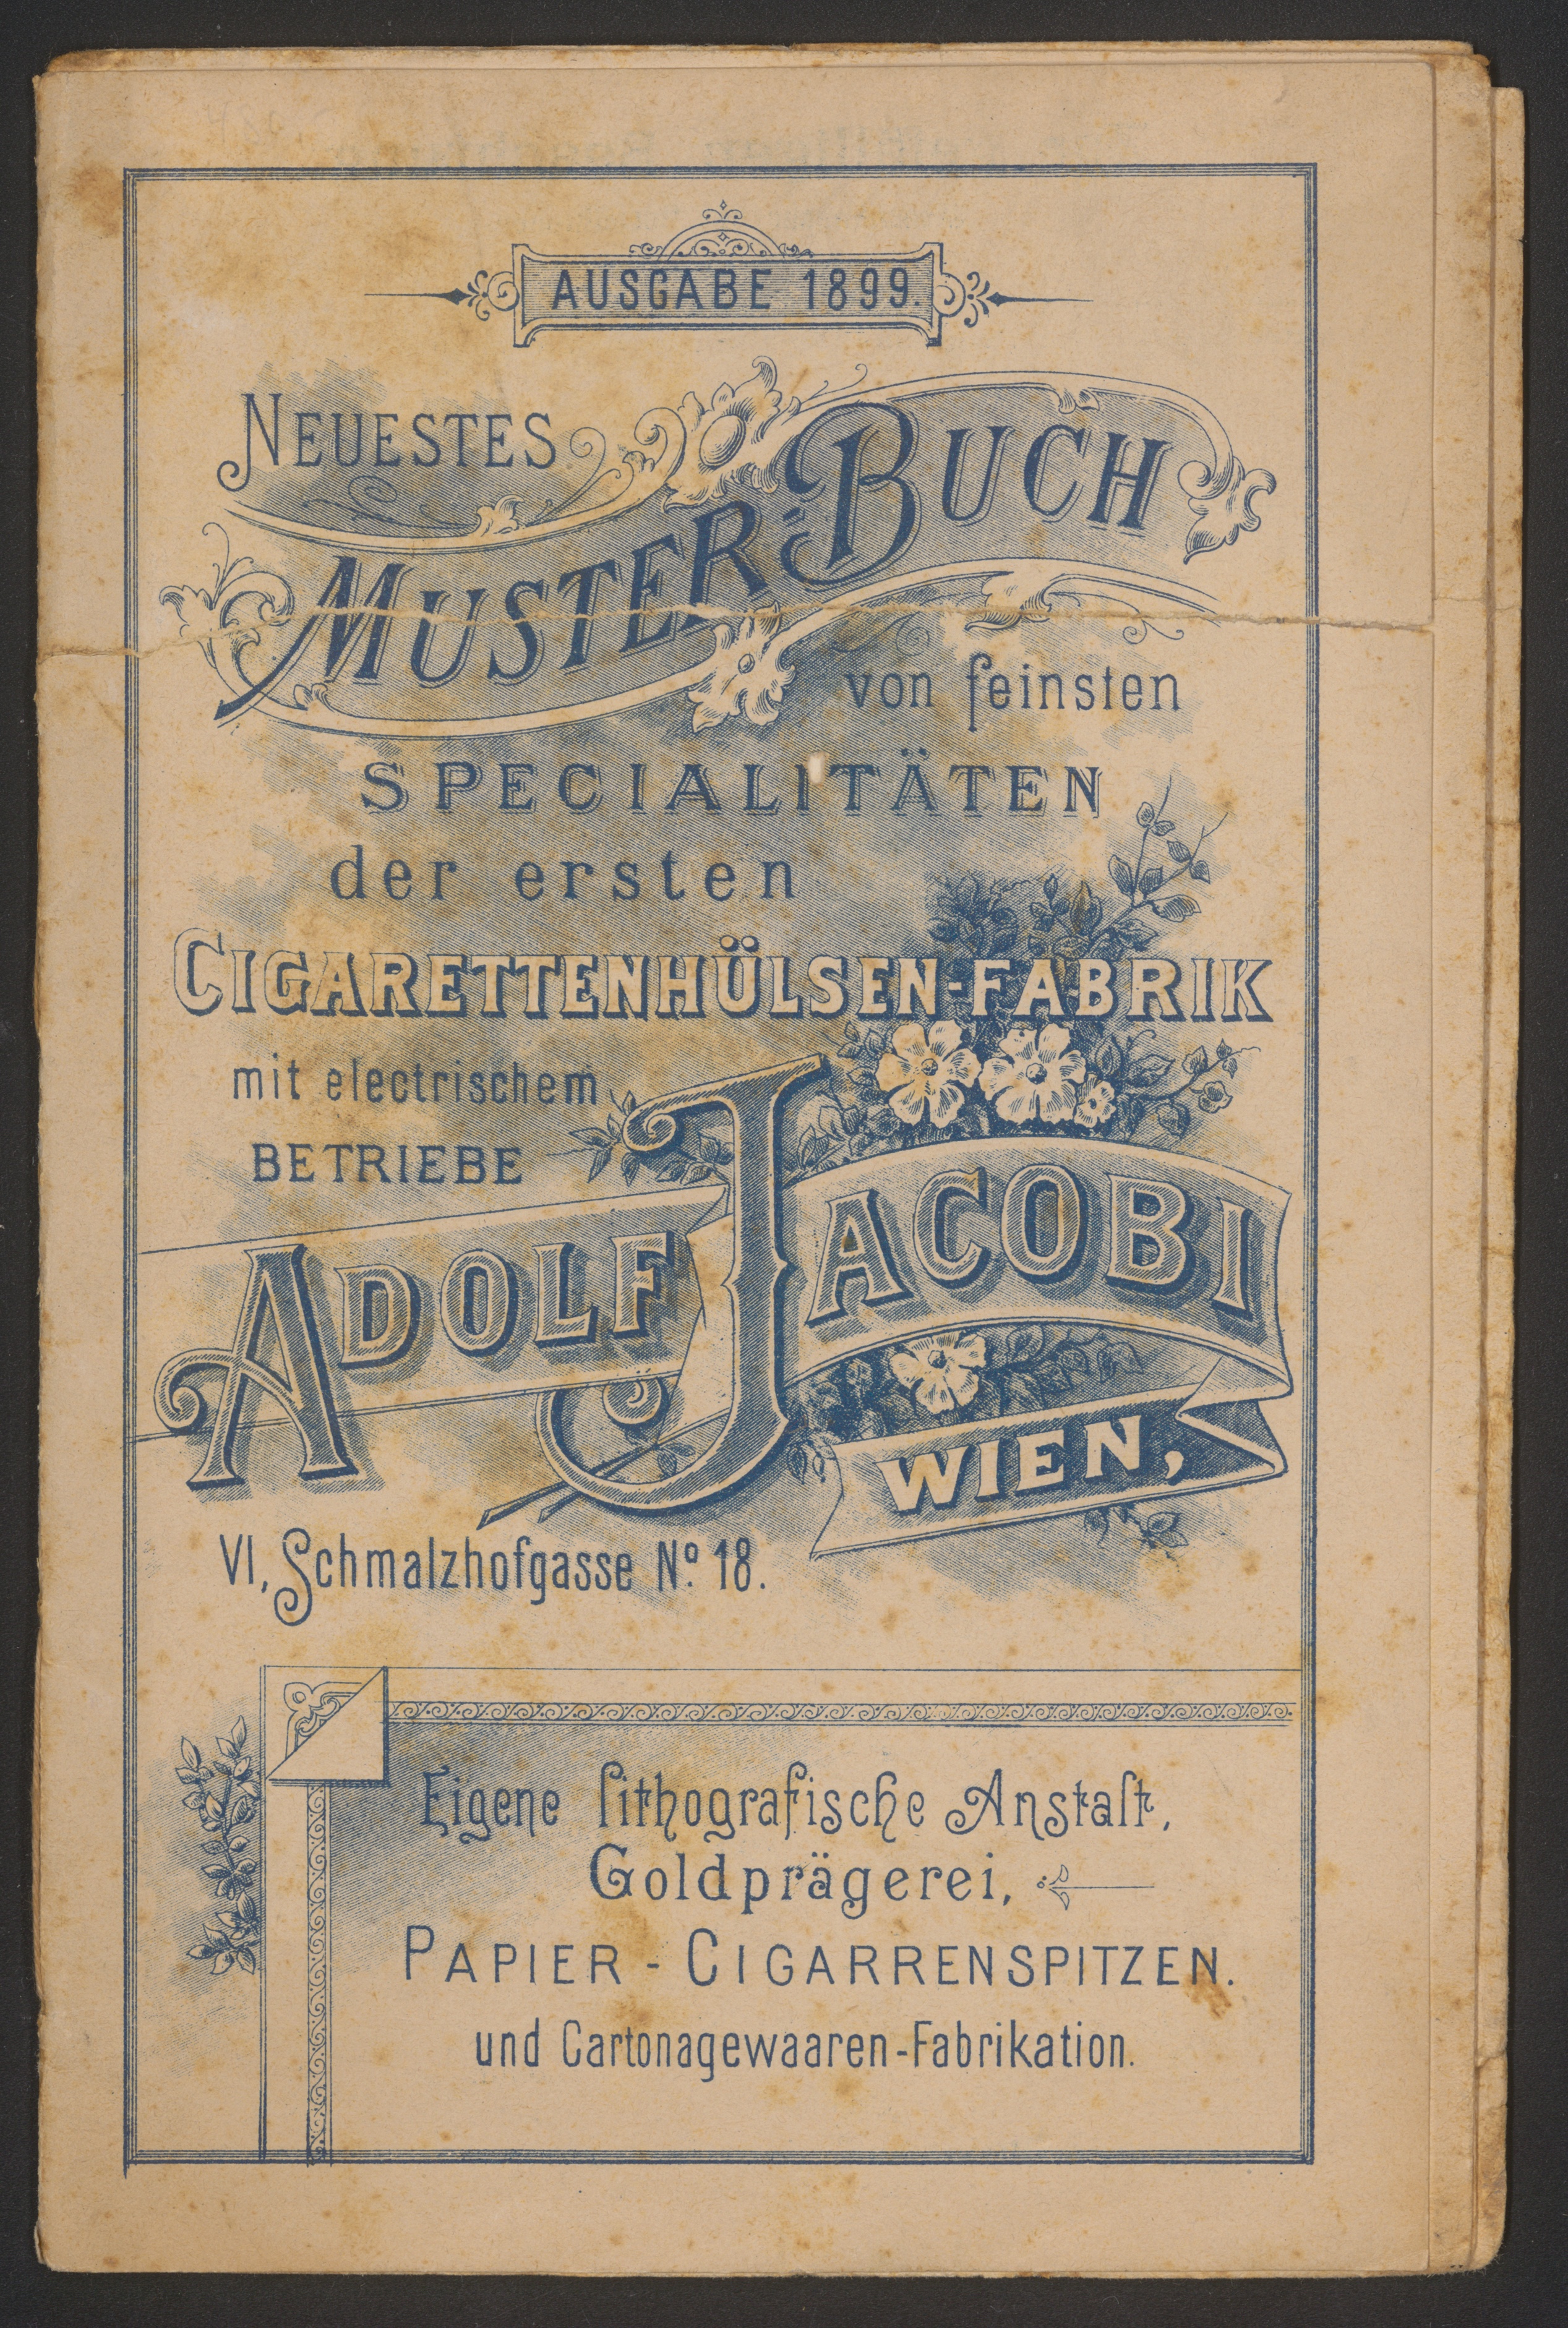 AUSGABE 1899.
NEUESTES
MUSTER-BUCH
von feinsten
SPECIALITÄTEN
der ersten
CIGARETTENHÜLSEN-FABRIK
mit electrischem
BETRIEBE
ADOLF JACOBI
WIEN,
VI, Schmalzhofgasse No. 18.
Eigene lithografische Anstalt,
Goldprägerei,
PAPIER-CIGARRENSPITZEN.
und Cartonagewaaren-Fabrikation.